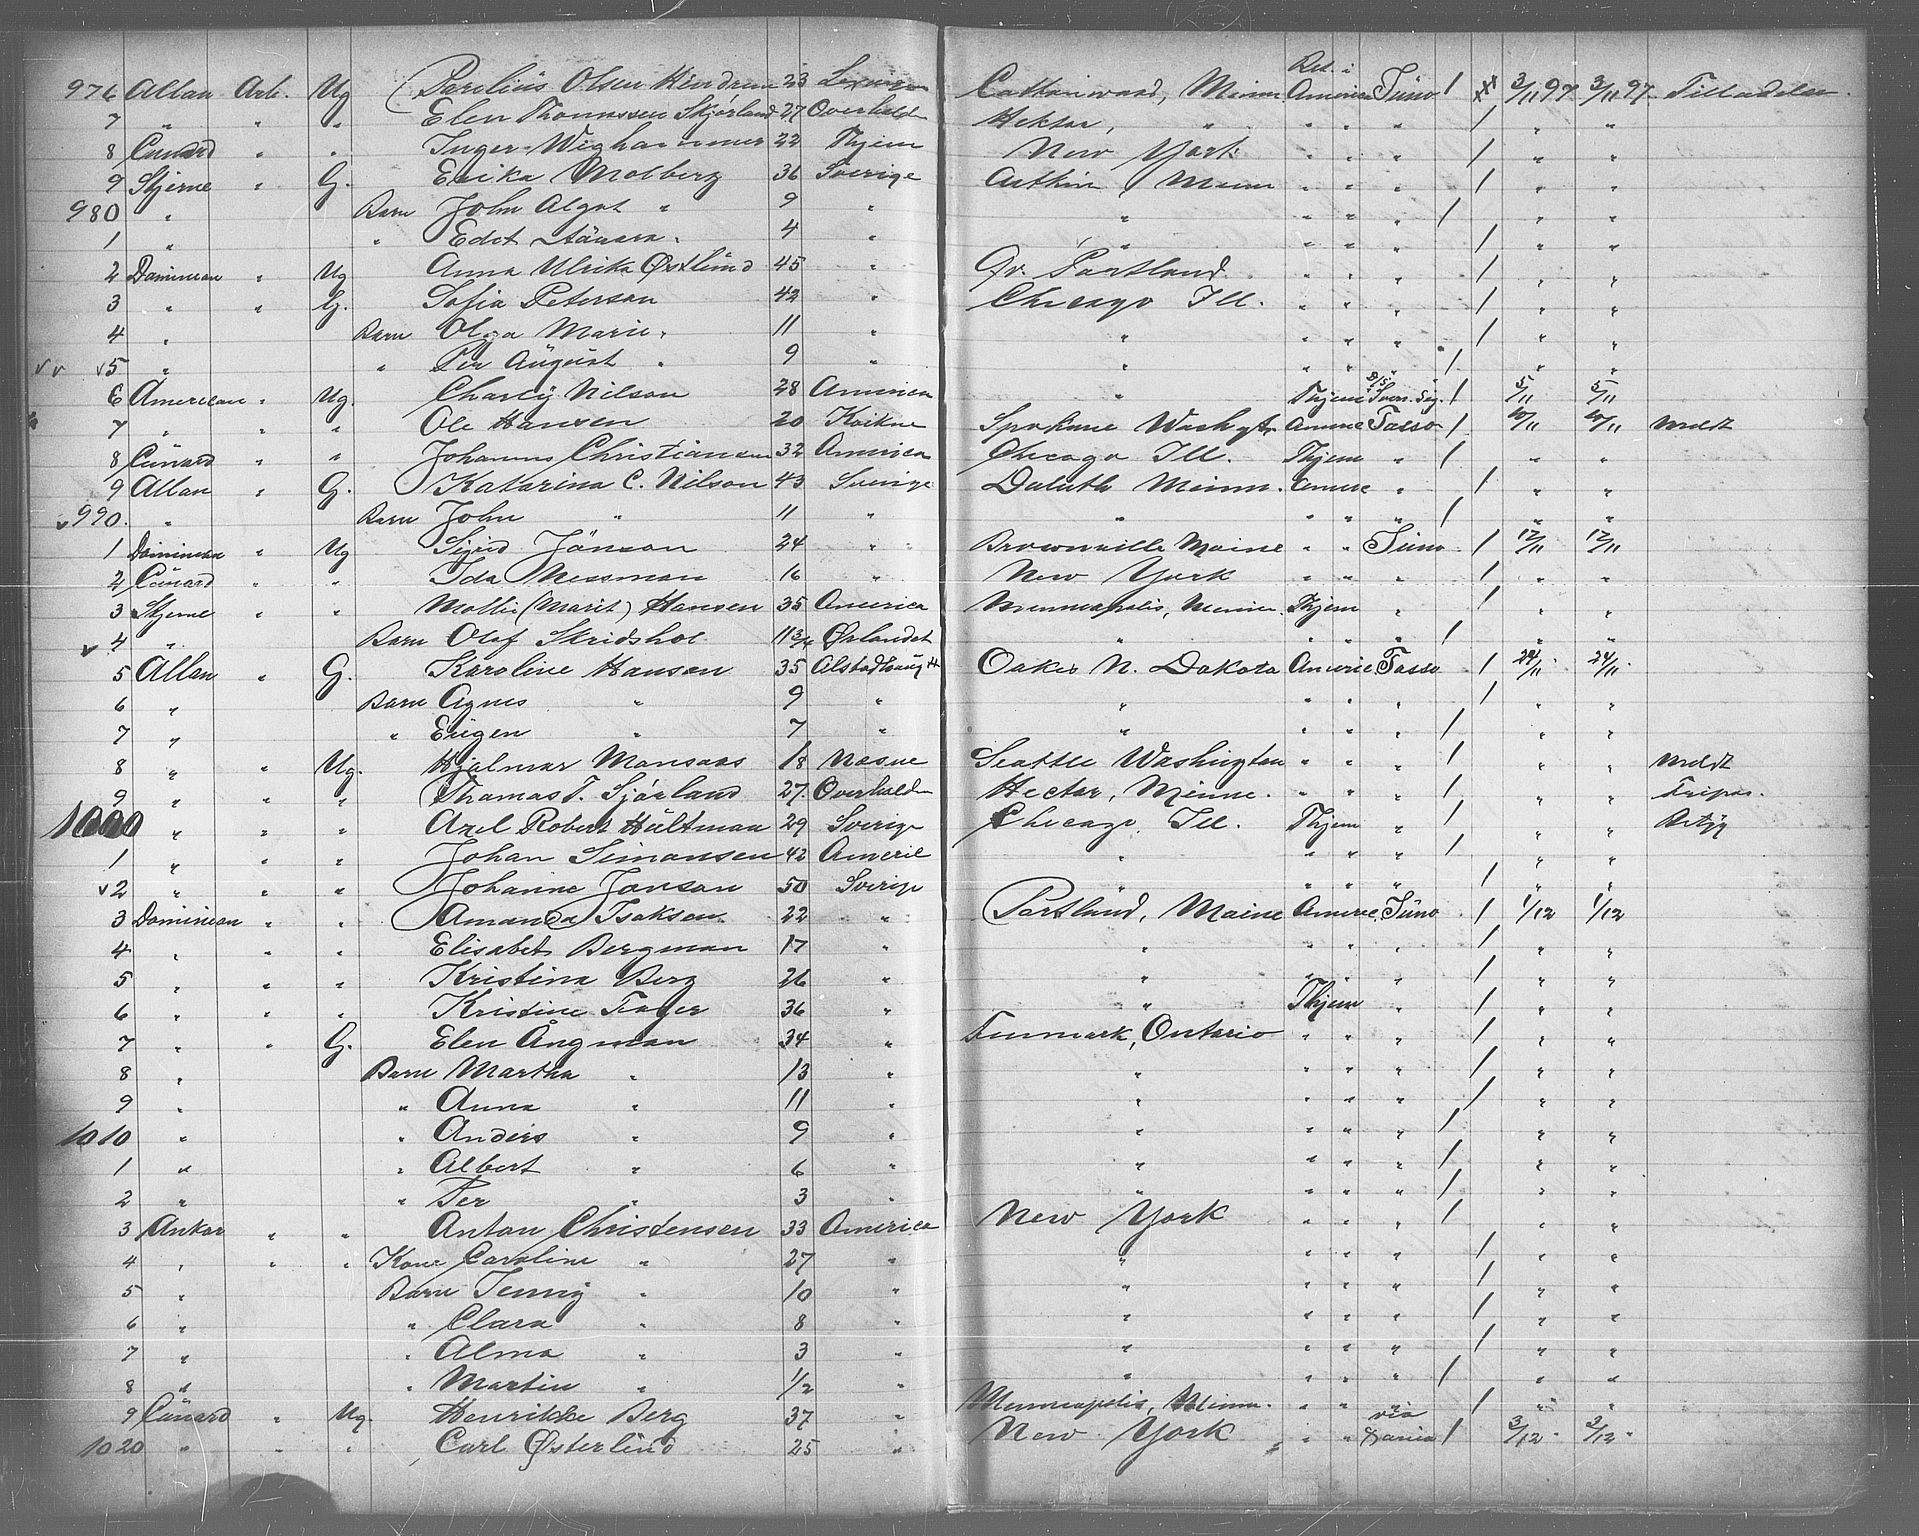 Ret. i
976 Allan Arb. Ug Parelius Olsen 23 Minn Americ Juno 1 3/11 97 3/11 97 Tilladelse.
7 " " " Elen Thomassen Skjørland 27 Overhalden Hektor, " " " " 1 " "
8 Cunard " " Inger Wighammer 22 Thjem New York " " " 1 " "
9 Stjerne " G. Erika Molberg 36 Sverige Aitkin, Minn " " " 1 " "
980 " Barn John Algot " 9 " " " " " 1 " "
1 " " Edet " 4 " " " " " 1 " "
2 Dominion " Ug Anna Ulrika Østlund 45 " Portland " " " 1 " "
3 " " G. Sofia Peterson 42 " Chicago Ill. " " " 1 " "
4 " Barn Olga Marie " 11 " " " " " 1 " "
v v v5 " " Per August " 9 " " " " " 1 " "
6 American " Ug. Charly Nilson 28 America " Thjem 1 5/11 5/11
7 " " " Ole Hansen 20 Spokane Washgt. Americ Tasso 1 10/11 10/11 meldt
8 Cunard " " Johannes Christiansen 32 America Chicago Ill. Thjem " 1 " "
9 Allan " G. Katarina C. Nilson 43 Sverige Duluth Minn. Americ " 1 " "
v 990. " Barn John " 11 " " " " " 1 " "
1 Dominion " Ug Sigrid Jönson 24 " Brownville Maine " " Juno 1 12/11 12/11
2 Cunard " " Ida Nessman 16 " New York " " " 1 " "
3 Stjerne " " Mollie (Marit) Hansen 35 America Minneapolis, Minn. Thjem " 1 " "
v 4 " Barn Olof Skridshol 11 3/4 Ørlandet " " " " 1 " "
5 Allan " G. Karoline Hansen 35 Alstadhaug H Oakes N. Dakota Americ Tasso 1 24/11 24/11
6 " Barn Agnes " 9 " " " " " 1 " "
7 " " Eugen " 7 " " " " " 1 " "
8 " " Ug. Hjalmar Mansaas 18 Nesne Seattle Washington " " " 1 " " meldt
9 " " " Thomas T. Sjørland 27. Overhalden Hector, Minne. " " " 1 " " Fripas.
1000 " " " Axel Robert Hultman 29 Sverige Chicago, Ill. Thjem " 1 " "
1 " " " Johan Simonsen 42 Americ " " " " 1 " "
v2 " " " Johanne Jonson 50 Sverige " " " " 1 " "
3 Dominion " " Amanda Isaksen 22 " Portland, Maine Americ Juno 1 1/12 1/12
4 " " " Elisabet Bergman 17 " " " " " 1 " "
5 " " " Kristina Berg 26 " " " " " 1 " "
6 " " " Kristine 36 " " Thjem " 1 " "
7 " " G. Elen Ångman 34 " Finmark, Ontario " " " 1 " "
8 " Barn Martha " 13 " " " " " 1 " "
9 " " Anna " 11 " " " " " 1 " "
1010 " " Anders " 9 " " " " " 1 " "
1 " " Albert " 6 " " " " " 1 " "
2 " " Per " 3 " " " " " 1 " "
3 Ankor " " Anton Christensen 33 America New York " " " 1 " "
4 " " " Kone Caroline " 27 " " " " " 1 " "
5 " Barn Jenny " 10 " " " " " 1 " "
6 " " Clara " 8 " " " " " 1 " "
7 " " Alma " 3 " " " " " 1 " "
8 " " Martin " 1/2 " " " " " 1 " "
9 Cunard " Ug. Henrikke Berg 37 " Minneapolis, Minn. " " " 1 " "
1020 " " " Carl Østerlund 25 " New York " " via 1 3/12 3/12